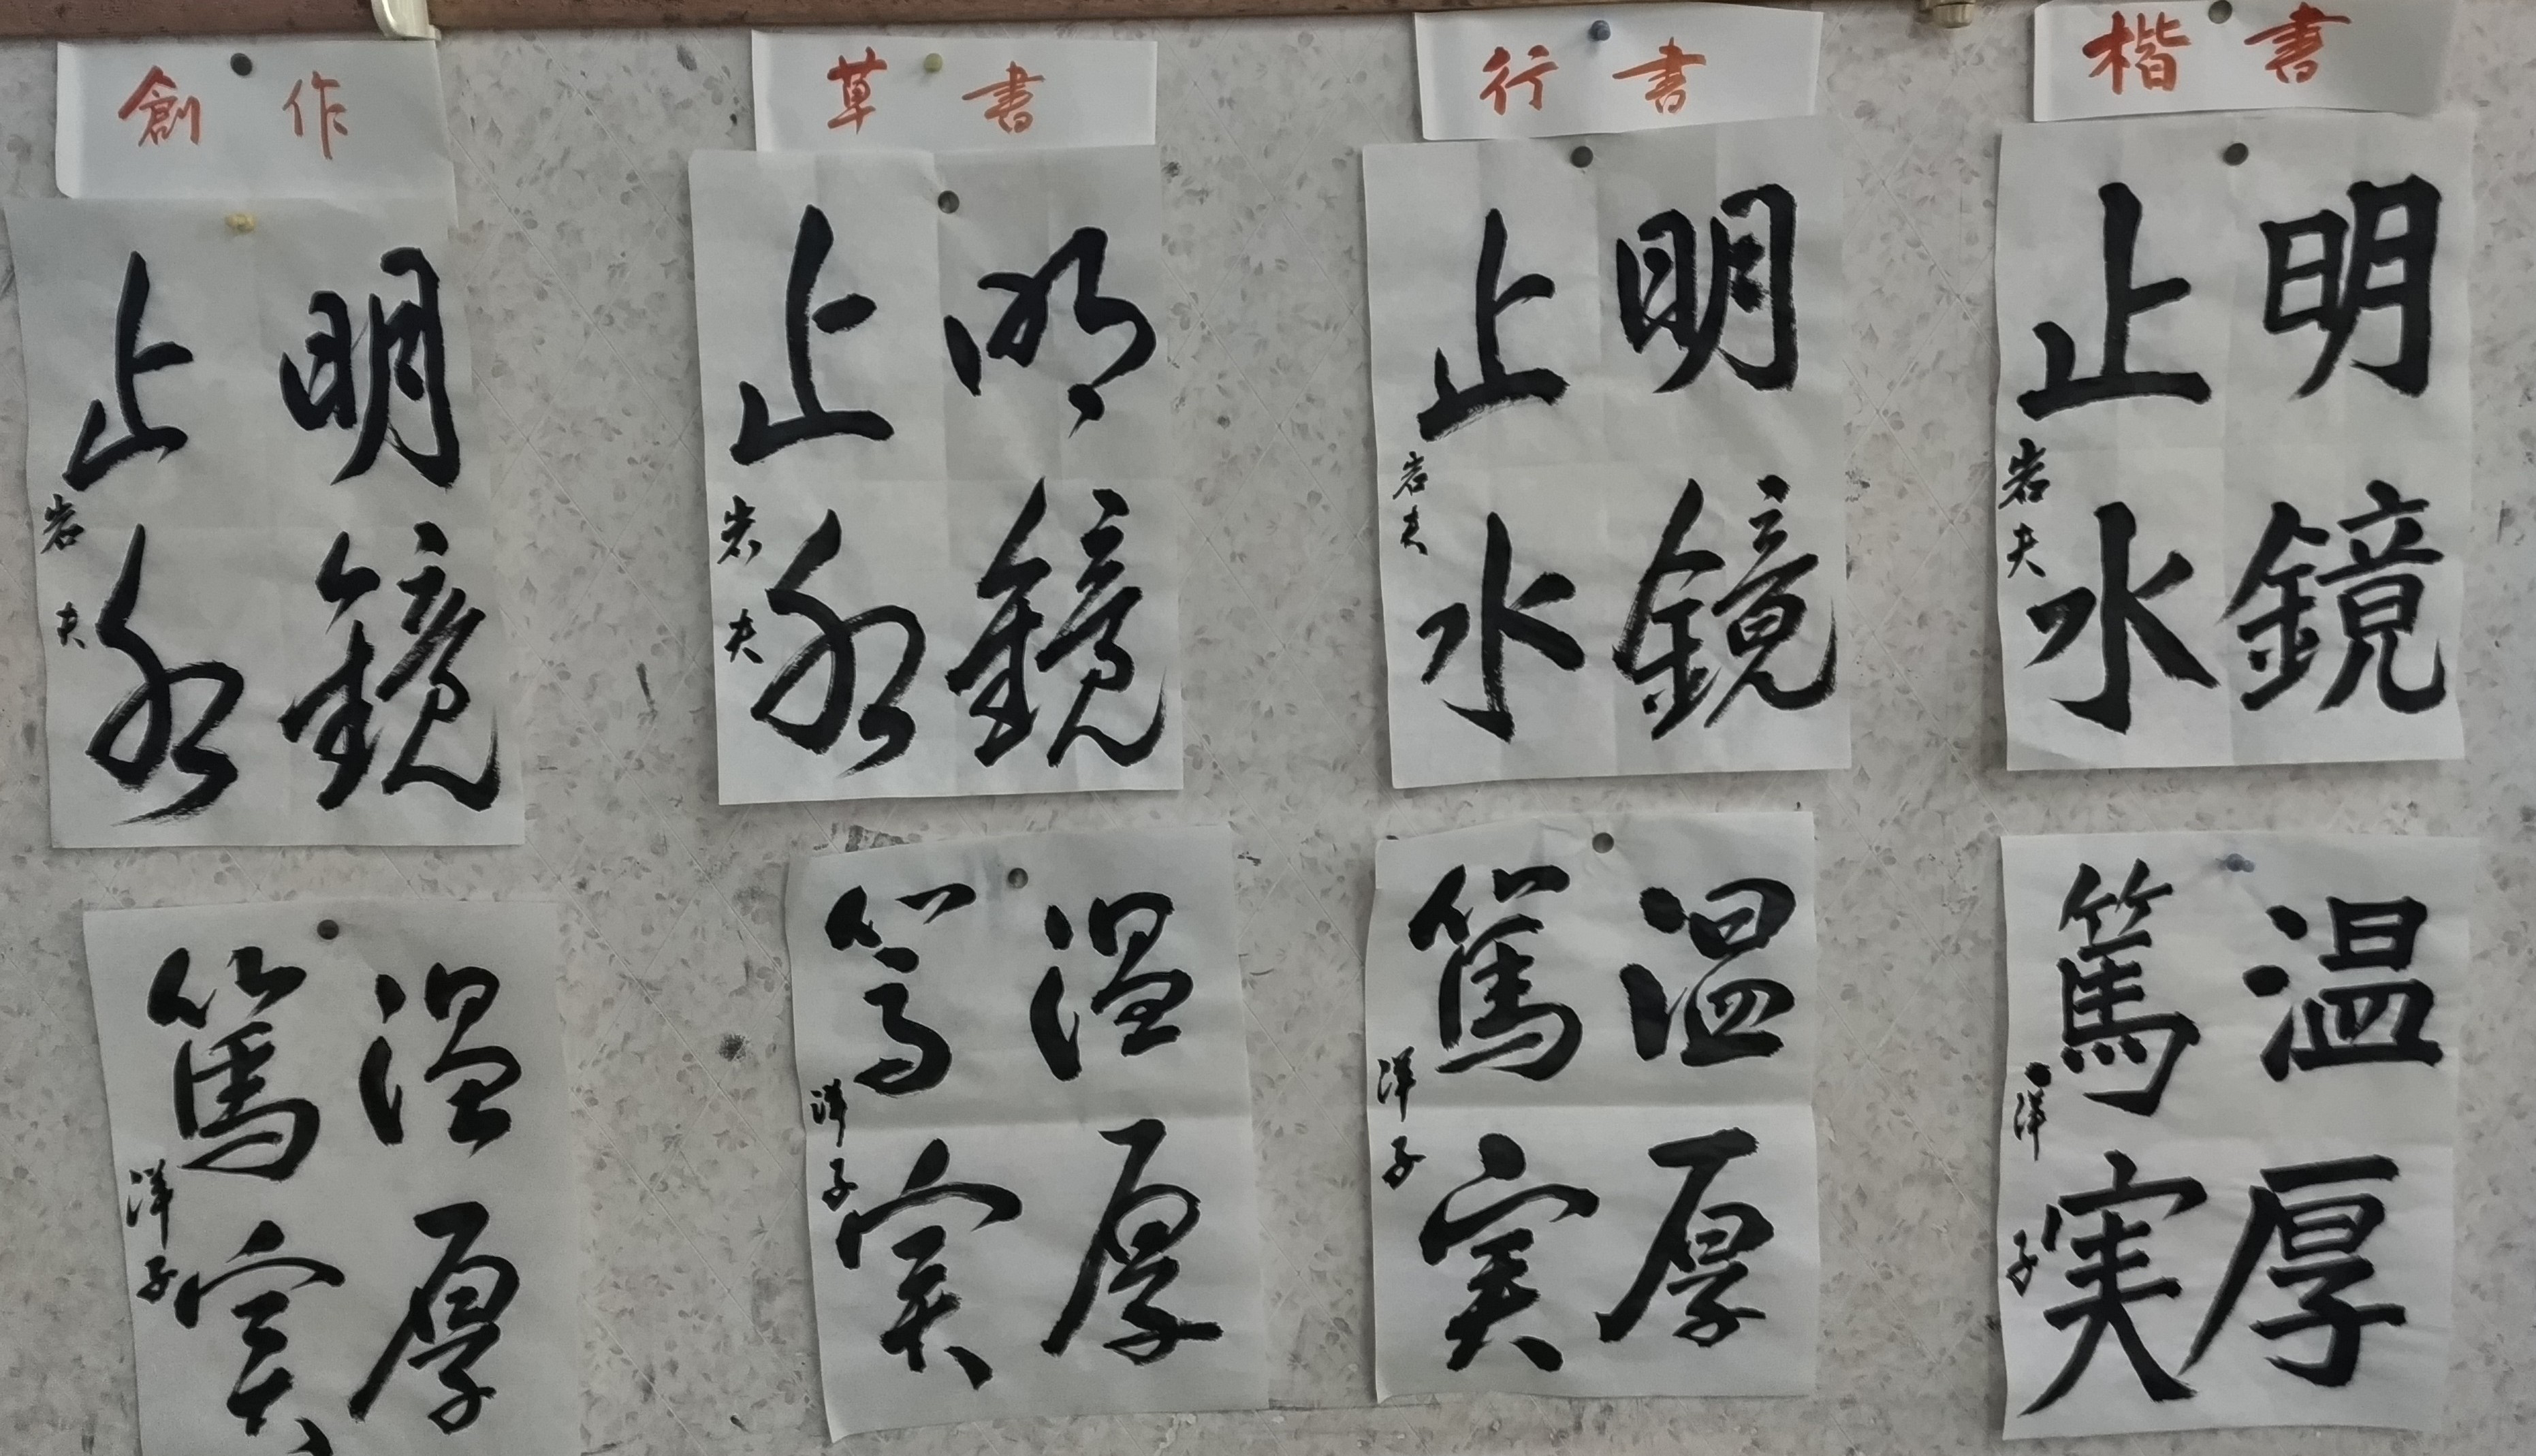 楷書
行書
草書
創作
明鏡
止水
岩夫
明鏡
止水
岩夫
明鏡
止水
岩夫
明鏡
止水
岩夫
温厚
篤実
洋子
温厚
篤実
洋子
温厚
篤実
洋子
温厚
篤実
洋子